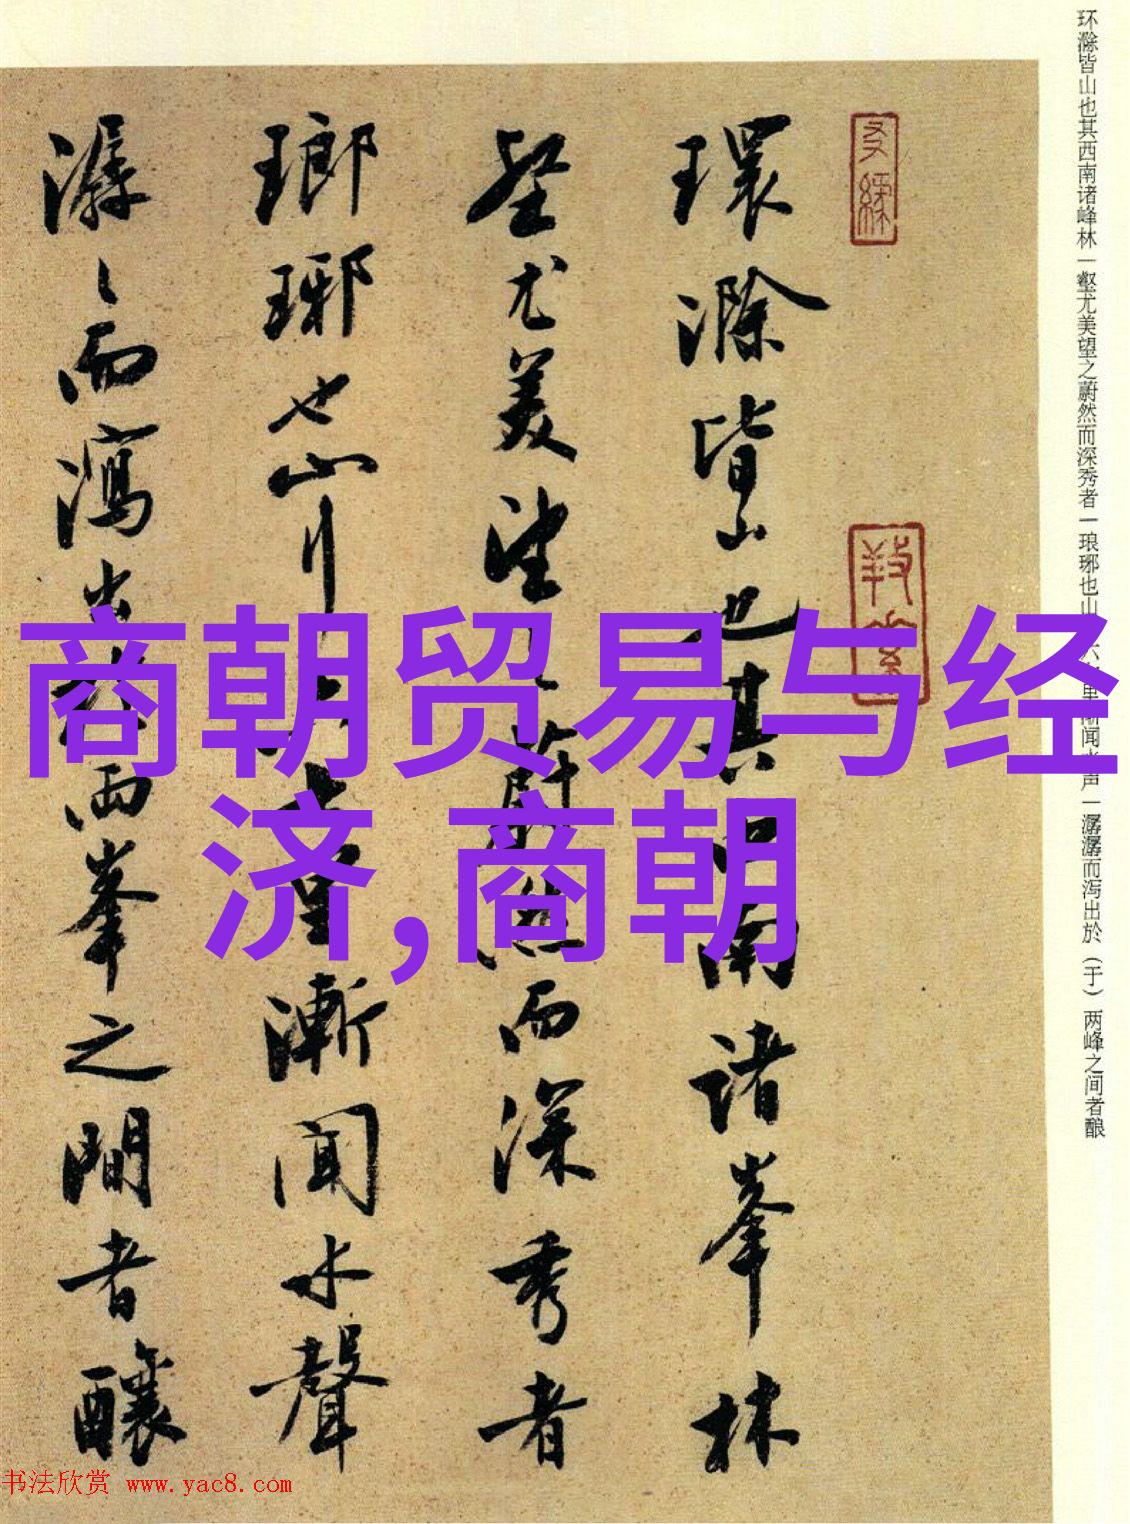 环滁皆山也其西南诸峰林一壑尤美望之蔚然而深秀者一琅琊也山六里渐闻水声一潺潺而泻出於（于）两峰之间者酿
環滁皆山也其西南諸峯林
壑尤美望之蔚然而深秀者
瑯琊也山行里漸聞水聲
潺〻而瀉出於兩峯之間者釀
商朝贸易与经
济,商朝
书法欣赏 www.yac8.com